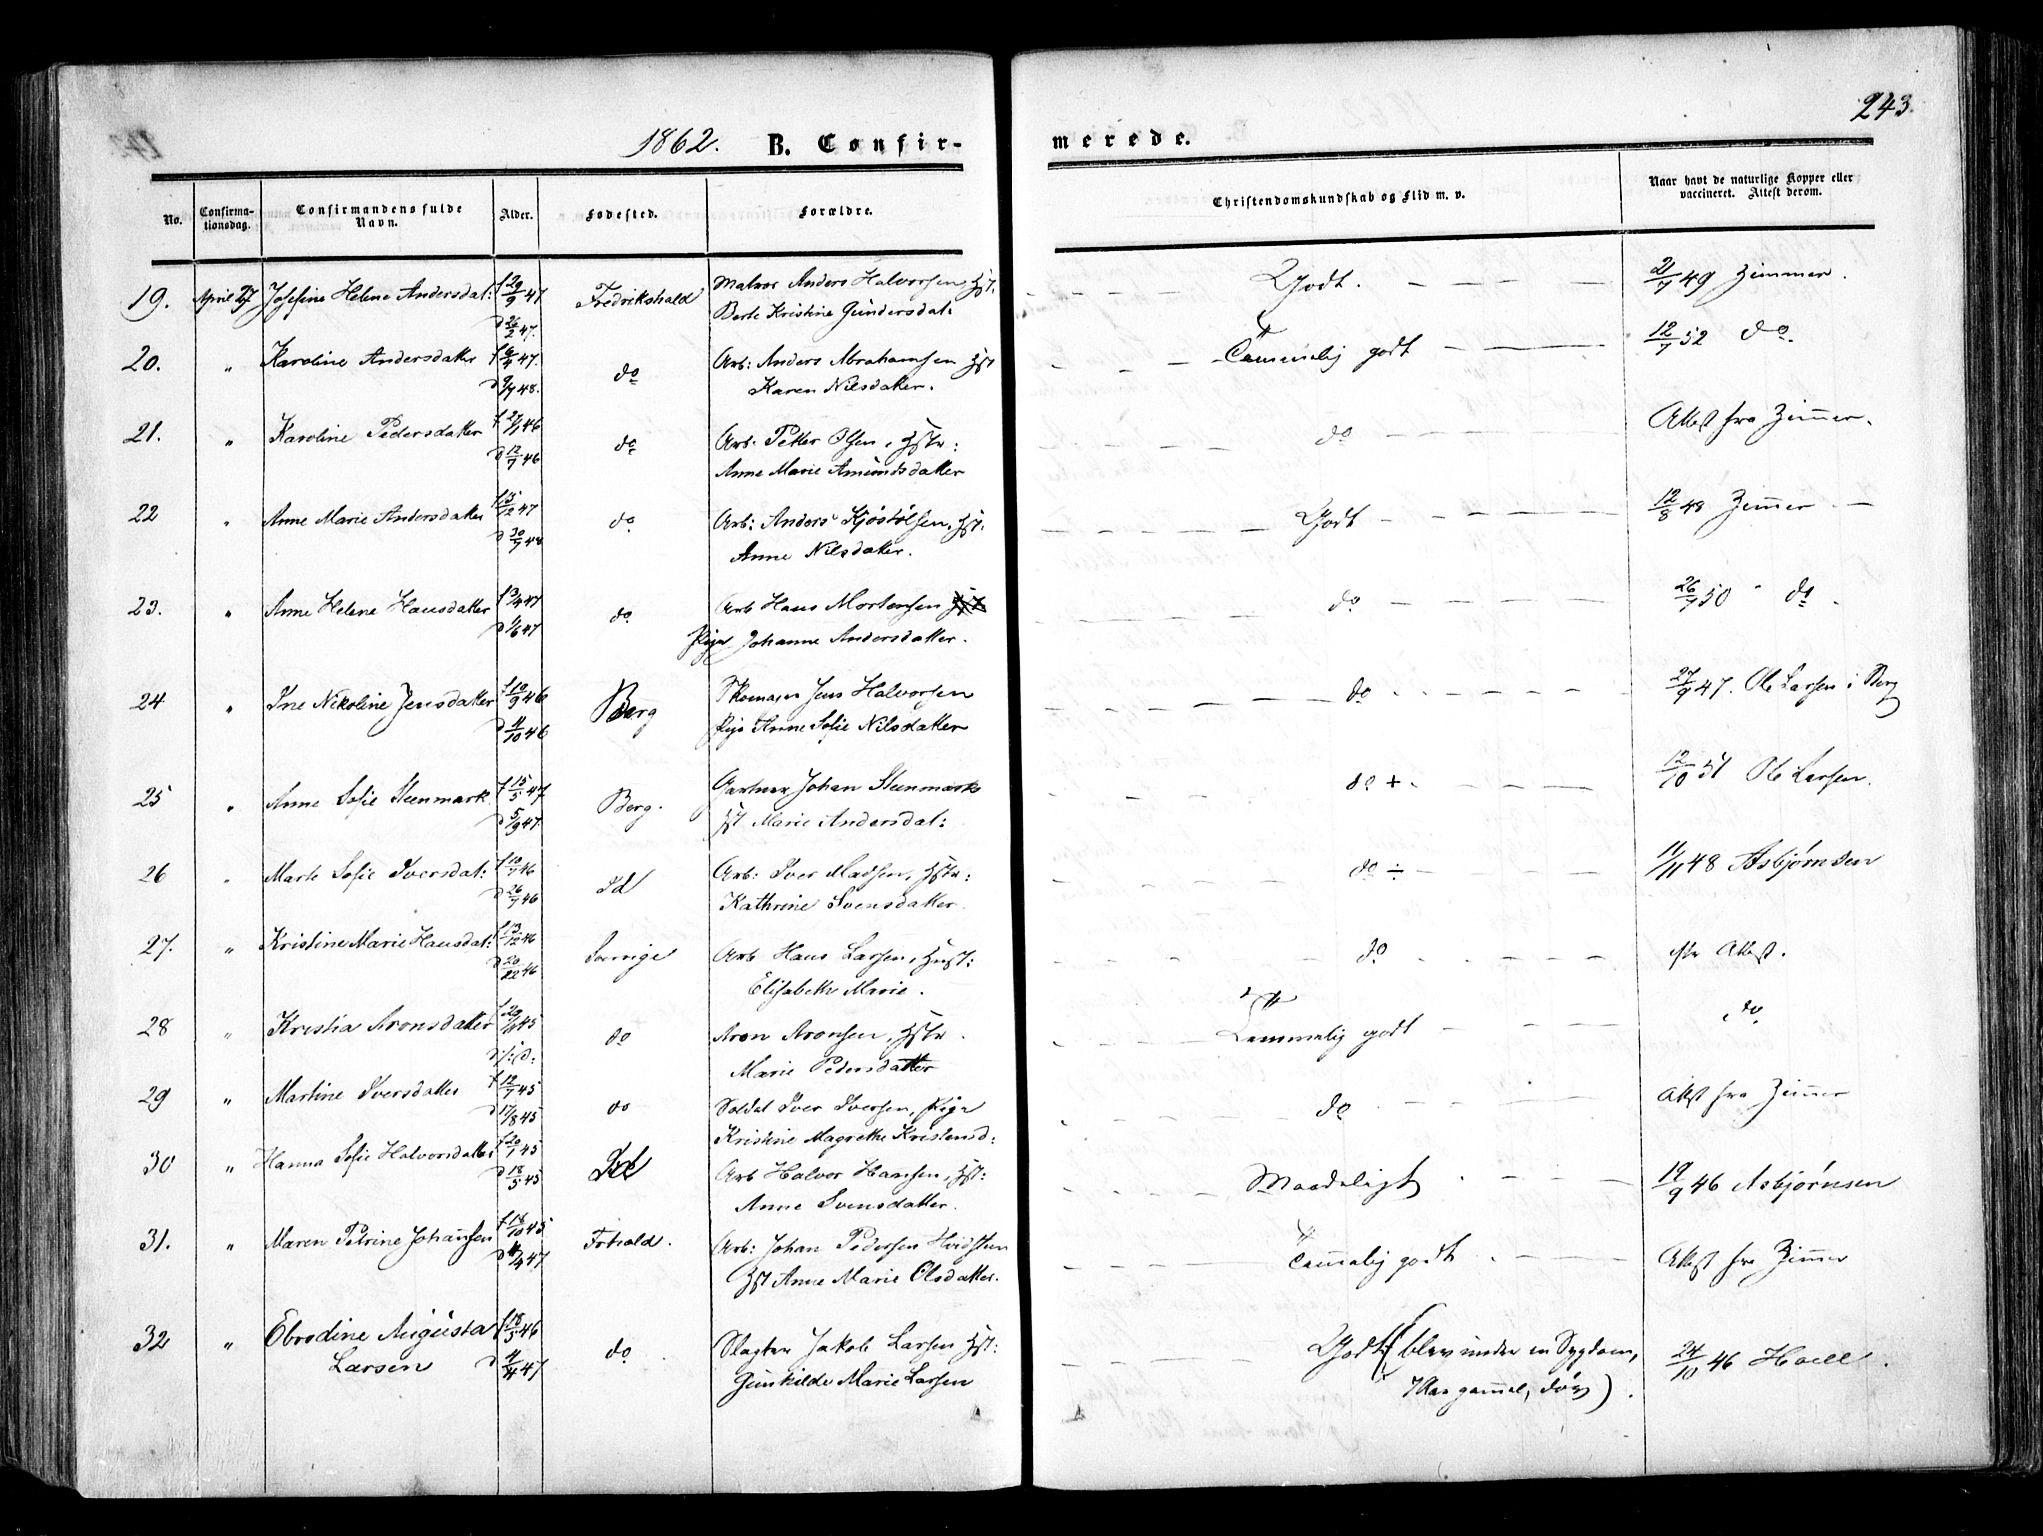 243.
1862. B. Confir-
merede.
No. Confirma-tionsdag. Confirmandens fulde Navn. Alder. Fødested. Forældre. Christendomskundskab og Flid m. v. Naar havt de naturlige Kopper eller vaccineret. Attest derom.
19. April 27 Josefine Helene Andersdat: f 29/9 47 Fredrikshald Matros Anders Halvorsen, Hst. Godt. 2/7 49 Zimmer.
Berte Kristine Gundersdat:
d 26/2 47.
20. " Karoline Andersdatter f 6/4 47. do Arb: Anders Abrahamsen Hst Temmelig godt 12/7 52 do.
d 9/4 48. Karen Nilsdatter.
21. " Karoline Pedersdatter f 27/1 46 do Arb. Petter Olsen, Hstr: do Attest fra Zimmer.
d 12/7 46 Anne Marie Amundsdatter
22 " Anne Marie Andersdatter f 15/12 47 do Arb: Anders Kjøstolsen, Hst. Godt 12/8 48 Zimmer
d 30/9 48 Anne Nilsdatter.
23. " Anne Helene Hansdatter f 3/4 47 do Arb Hans Mortensen do 26/7 50 " do
d 1/6 47 Pige Johanne Andersdatter.
24 " Ine Nikoline Jensdatter f 10/9 46 Berg Skomager Jens Halvorsen do 27/9 47. Ole Larsen i Berg
d 11/10 46 Pige Anne Sofie Nilsdatter
25 " Anne Sofie Steenmark. f 15/5 47 Berg. Gartner Johan Steenmark do + 12/10 51 Ole Larsen.
d 5/9 47. Hst Marie Andersdat:
26 " Marte Sofie Iversdat: f 10/7 46 Id Arb: Iver Madsen, Hstr: do ÷ 11/11 48 Asbjørnsen
d 26/7 46 Kathrine Svensdatter.
27. " Kristine Marie Hansdat: f 13/12 46 Sverige Arb Hans Larsen, Hust: do Attest.
d 20/12 46 Elisabeth Marie.
28 " Kristia Aronsdatter f 45 do Aron Aronsen, Hstr. Temmelig godt do
Marie Pedersdatter
29 " Martine Iversdatter f 12/7 45 do Soldat Iver Iversen, Pige do Attest fra Zimmer
d 17/8 45 Kristine Magrethe Kristensd:
30 " Hanna Sofie Halvorsdatter f 20/1 45 Id Arb Halvor Hansen, Hst: Maadeligt 19/9 46 Asbjørnsen
d 18/5 45 Anne Svensdatter.
31. " Maren Petrine Johannsen f 18/10 45 Frhald. Arb: Johan Pedersen Hvidsteen Temmelig godt Attest fra Zimmer
d 4/4 47 Hst Anne Marie Olsdatter.
32 " Ebrodine Augusta f 18/5 46 do Slagter Jakob Larsen Hst: Godt (blev under en Sygdom, 24/10 46 Hoell.
Larsen d 11/4 47 Gunhilde Marie Larsen 7 Aar gammel, døv).